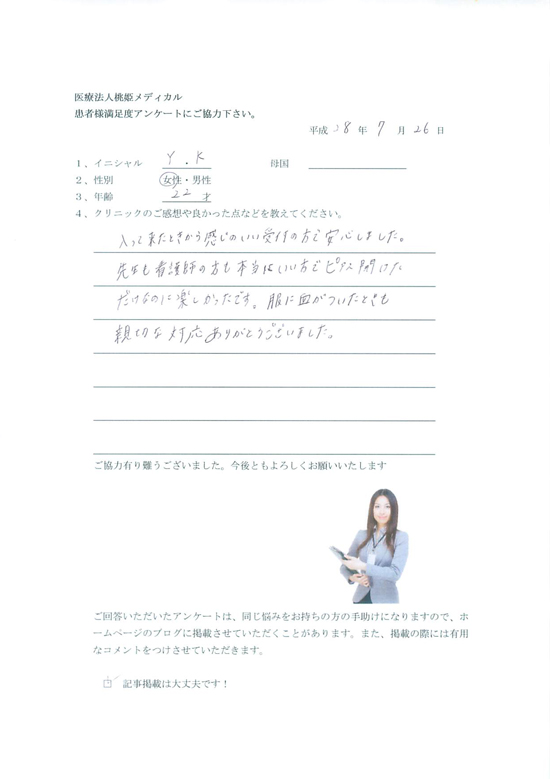 医療法人桃姫メディカル
患者様満足度アンケートにご協力下さい。
平成 28 年 7 月 26 日
1、イニシャル Y . K 母国
2、性別 女性・男性
3、年齢 22 才
4、クリニックのご感想や良かった点などを教えてください。
入って来たときから感じのいい受付の方で安心しました。
先生も看護師の方も本当にいい方でピアス開けた
だけなのに楽しかったです。服に血がついたときも
親切な対応ありがとうございました。
ご協力有り難うございました。今後ともよろしくお願いいたします
ご回答いただいたアンケートは、同じ悩みをお持ちの方の手助けになりますので、ホ
ームページのブログに掲載させていただくことがあります。また、掲載の際には有用
なコメントをつけさせていただきます。
記事掲載は大丈夫です！